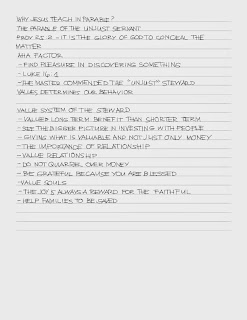 WHY JESUS TEACH IN PARABLE?
THE PARABLE OF THE UNJUST SERVANT
PROV 25:2 - IT IS THE GLORY OF GOD TO CONCEAL THE
MATTER
AHA FACTOR
- FIND PLEASURE IN DISCOVERING SOMETHING
- LUKE 16:
- THE MASTER COMMENDED THE "UNJUST" STEWARD
VALUES DETERMINES OUR BEHAVIOR
VALUE SYSTEM OF THE STEWARD
- VALUED LONG TERM BENEFIT THAN SHORTER TERM
- SEE THE BIGGER PICTURE IN INVESTING WITH PEOPLE
- GIVING WHAT IS VALUABLE AND NOT JUST ONLY MONEY
- THE IMPORTANCE OF RELATIONSHIP
- VALUE RELATIONSHIP
- DO NOT QUARREL OVER MONEY
- BE GRATEFUL BECAUSE YOU ARE BLESSED
- VALUE SOULS
- THE JOY IS ALWAYS A REWARD FOR THE FAITHFUL
- HELP FAMILIES TO BE SAVED